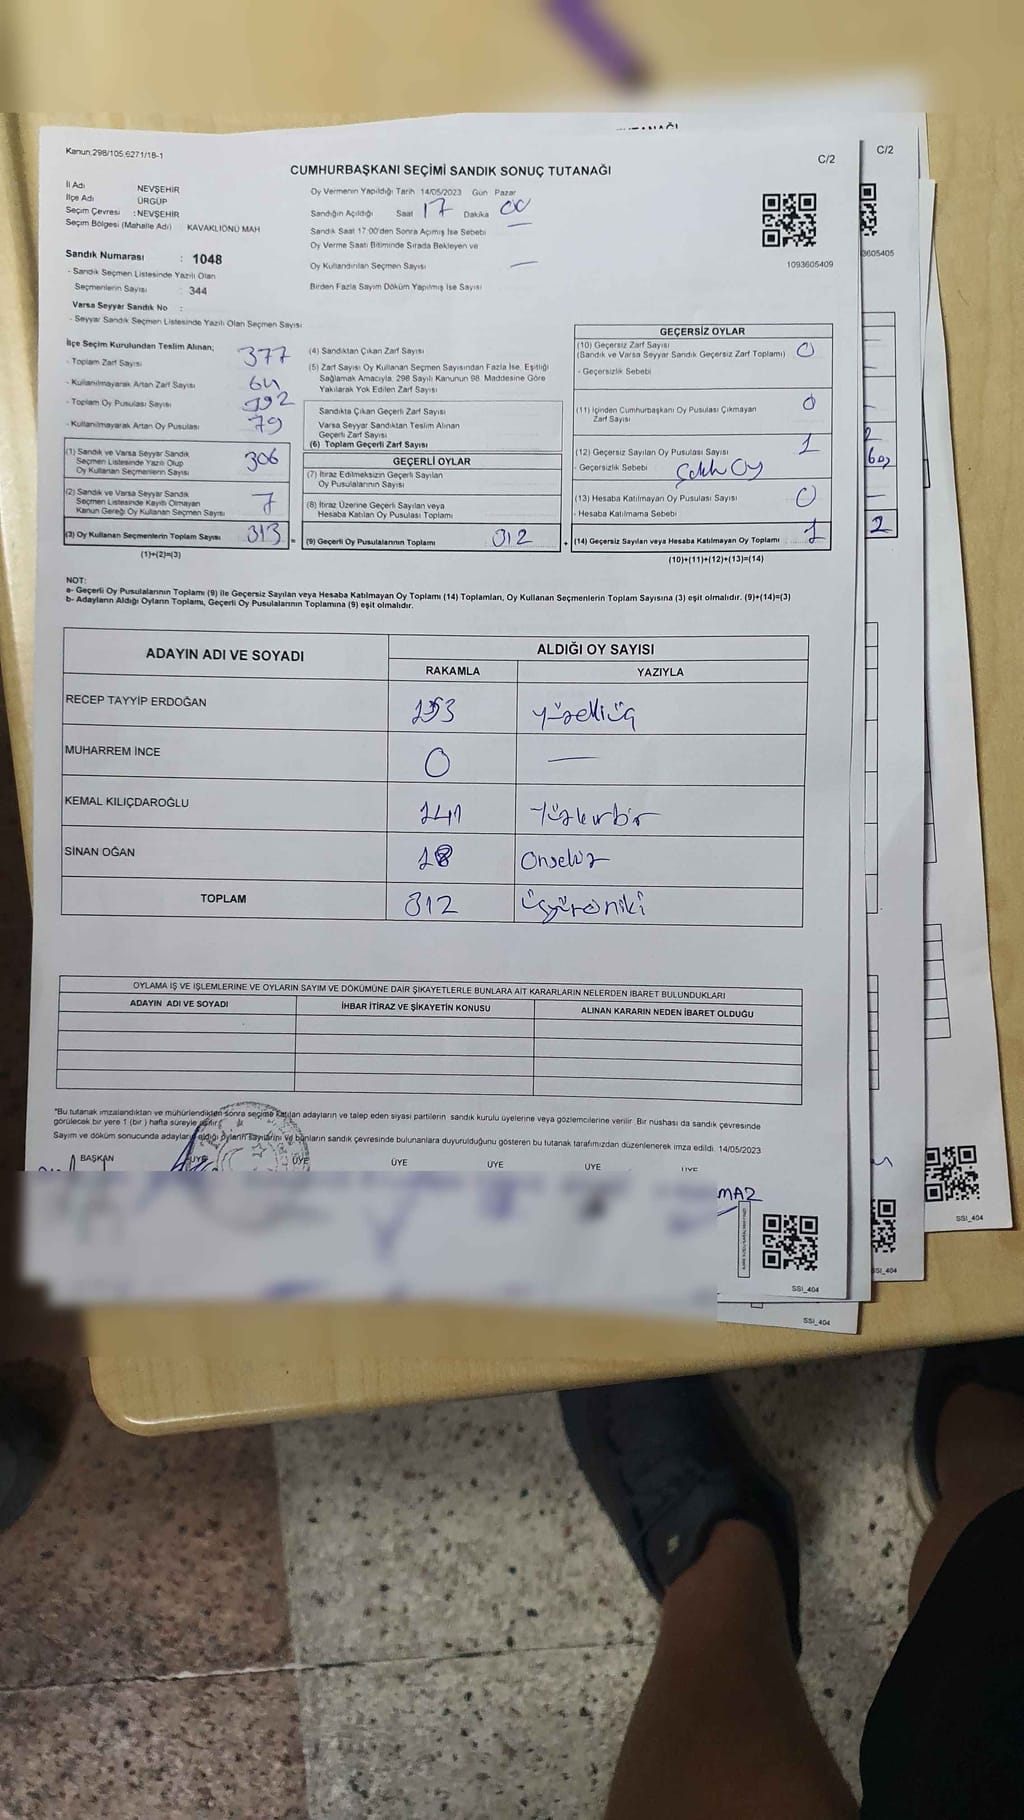 Kanun:298/105,6271/18-1
C/2
C/2
CUMHURBAŞKANI SEÇİMİ SANDIK SONUÇ TUTANAĞI
İl Adı NEVŞEHİR
İlçe Adı ÜRGÜP
Seçim Çevresi : NEVŞEHİR
Seçim Bölgesi (Mahalle Adı) KAVAKLIÖNÜ MAH
Oy Vermenin Yapıldığı Tarih 14/05/2023 Gün Pazar
Sandığın Açıldığı Saat 17 Dakika 00
Sandık Saat 17:00'den Sonra Açımış İse Sebebi
Oy Verme Saati Bitiminde Sırada Bekleyen ve
Oy Kullandırılan Seçmen Sayısı —
Birden Fazla Sayım Döküm Yapılmış İse Sayısı
1093605409
3605405
Sandık Numarası : 1048
- Sandık Seçmen Listesinde Yazılı Olan
Seçmenlerin Sayısı : 344
Varsa Seyyar Sandık No :
- Seyyar Sandık Seçmen Listesinde Yazılı Olan Seçmen Sayısı:
İlçe Seçim Kurulundan Teslim Alınan;
- Toplam Zarf Sayısı 377
- Kullanılmayarak Artan Zarf Sayısı 64
- Toplam Oy Pusulası Sayısı 392
- Kullanılmayarak Artan Oy Pusulası 79
(1) Sandık ve Varsa Seyyar Sandık
Seçmen Listesinde Yazılı Olup
Oy Kullanan Seçmenlerin Sayısı 306
(2) Sandık ve Varsa Seyyar Sandık
Seçmen Listesinde Kayıtlı Olmayan
Kanun Gereği Oy Kullanan Seçmen Sayısı 7
(3) Oy Kullanan Seçmenlerin Toplam Sayısı 313
(1)+(2)=(3)
(4) Sandıktan Çıkan Zarf Sayısı
(5) Zarf Sayısı Oy Kullanan Seçmen Sayısından Fazla İse, Eşitliği
Sağlamak Amacıyla, 298 Sayılı Kanunun 98. Maddesine Göre
Yakılarak Yok Edilen Zarf Sayısı
Sandıkta Çıkan Geçerli Zarf Sayısı
Varsa Seyyar Sandıktan Teslim Alınan
Geçerli Zarf Sayısı
(6) Toplam Geçerli Zarf Sayısı
GEÇERLİ OYLAR
(7) İtiraz Edilmeksizin Geçerli Sayılan
Oy Pusulalarının Sayısı
(8) İtiraz Üzerine Geçerli Sayılan veya
Hesaba Katılan Oy Pusulası Toplamı
= (9) Geçerli Oy Pusulalarının Toplamı 312
GEÇERSİZ OYLAR
(10) Geçersiz Zarf Sayısı 0
(Sandık ve Varsa Seyyar Sandık Geçersiz Zarf Toplamı)
- Geçersizlik Sebebi
(11) İçinden Cumhurbaşkanı Oy Pusulası Çıkmayan 0
Zarf Sayısı
(12) Geçersiz Sayılan Oy Pusulası Sayısı 1
- Geçersizlik Sebebi Oy
(13) Hesaba Katılmayan Oy Pusulası Sayısı 0
- Hesaba Katılmama Sebebi
+ (14) Geçersiz Sayılan veya Hesaba Katılmayan Oy Toplamı 1
(10)+(11)+(12)+(13)=(14)
2
NOT:
a- Geçerli Oy Pusulalarının Toplamı (9) ile Geçersiz Sayılan veya Hesaba Katılmayan Oy Toplamı (14) Toplamları, Oy Kullanan Seçmenlerin Toplam Sayısına (3) eşit olmalıdır. (9)+(14)=(3)
b- Adayların Aldığı Oyların Toplamı, Geçerli Oy Pusulalarının Toplamına (9) eşit olmalıdır.
ADAYIN ADI VE SOYADI ALDIĞI OY SAYISI
RAKAMLA YAZIYLA
RECEP TAYYİP ERDOĞAN 153 yüzelliüç
MUHARREM İNCE 0 —
KEMAL KILIÇDAROĞLU 141 Yüzkırkbir
SİNAN OĞAN 18 Onsekiz
TOPLAM 312 üçyüzoniki
OYLAMA İŞ VE İŞLEMLERİNE VE OYLARIN SAYIM VE DÖKÜMÜNE DAİR ŞİKAYETLERLE BUNLARA AİT KARARLARIN NELERDEN İBARET BULUNDUKLARI
ADAYIN ADI VE SOYADI İHBAR İTİRAZ VE ŞİKAYETİN KONUSU ALINAN KARARIN NEDEN İBARET OLDUĞU
*Bu tutanak imzalandıktan ve mühürlendikten sonra seçime katılan adayların ve talep eden siyasi partilerin sandık kurulu üyelerine veya gözlemcilerine verilir. Bir nüshası da sandık çevresinde
görülecek bir yere 1 (bir ) hafta süreyle asılır.
Sayım ve döküm sonucunda adayların aldığı oyların sayılarını ve bunların sandık çevresinde bulunanlara duyurulduğunu gösteren bu tutanak tarafımızdan düzenlenerek imza edildi. 14/05/2023
BAŞKAN ÜYE ÜYE ÜYE ÜYE ÜYE ÜYE
MAZ
SSI_404
SSI_404
SSI_404
SSI_404